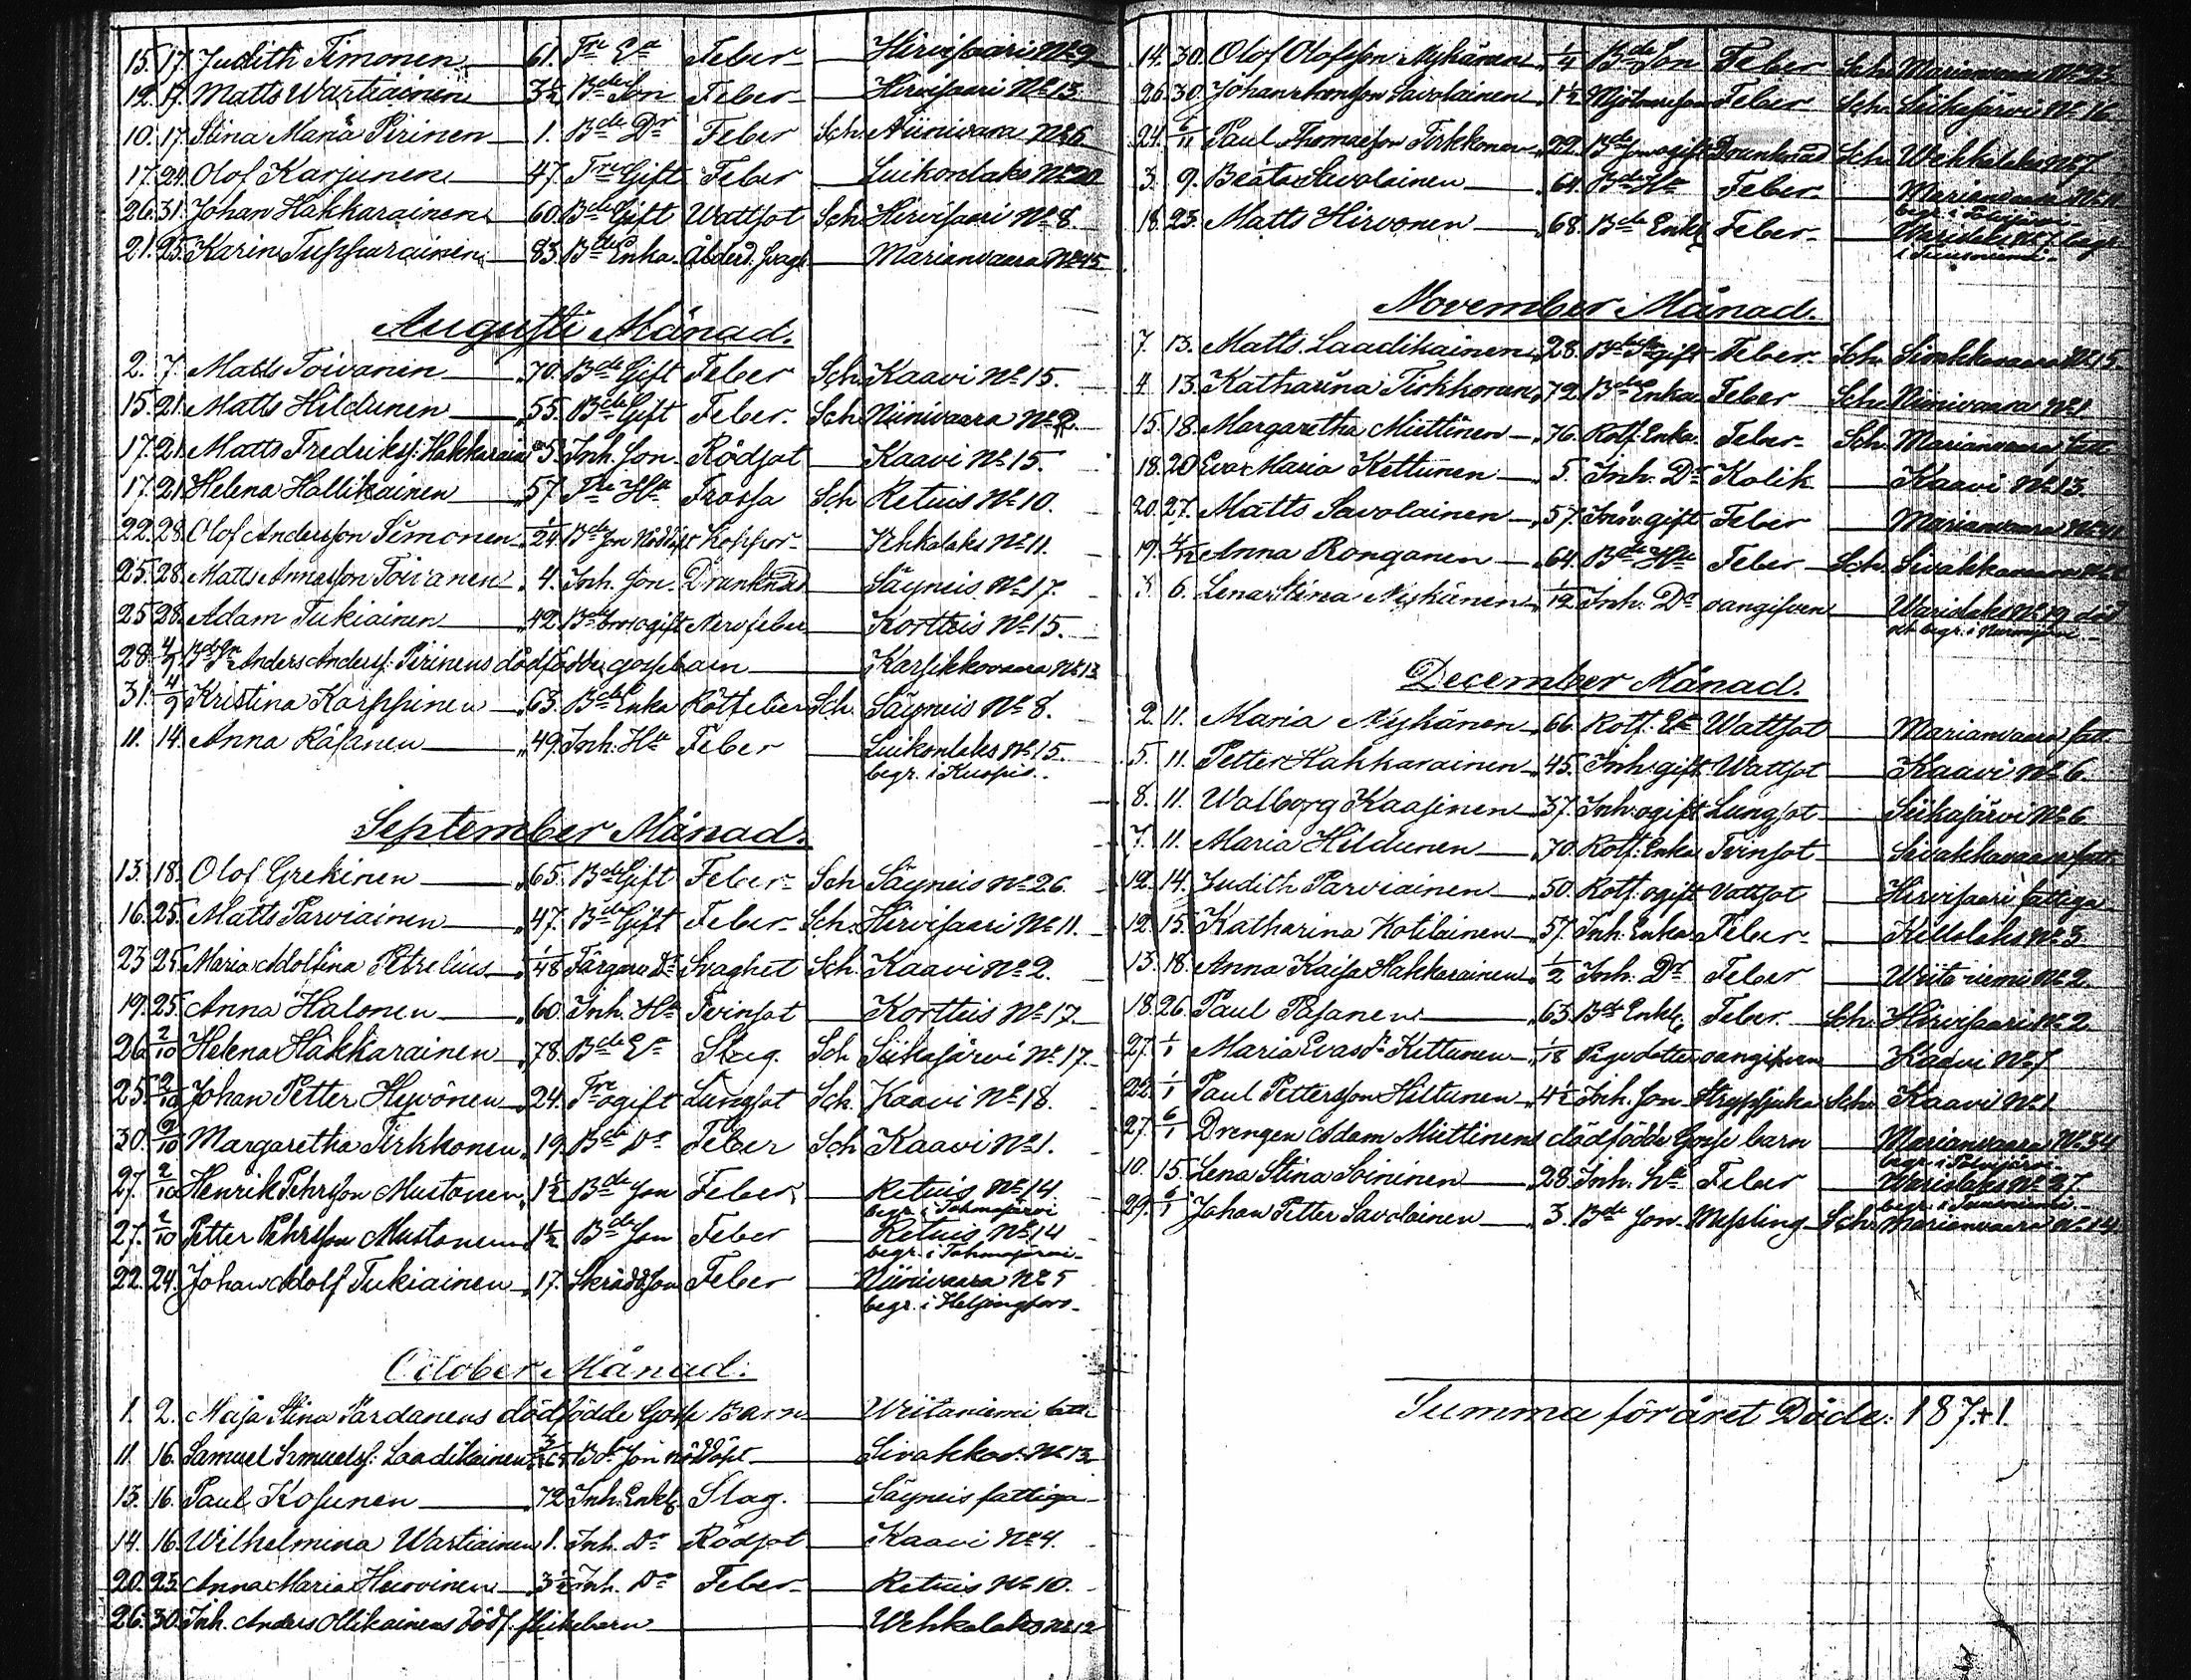 15. 17. Judith Timonen 61. Tre Ea Feber Hirvisaari No 9
12. 17. Matts Wartiainen 3½ Bde Son Feber Hirvisaari No 13
10. 17. Stina Maria Pirinen 1. Bde Dr Feber Sch. Niinivaara No 6
17. 24. Olof Karjunen 47. Tre Gift Feber Luikonlaks No 20
26. 31. Johan Hakkarainen 60. Bde Gift Wattsot Sch. Hirvisaari No 8.
21. 25. Karin Tuppurainen 83. Bde Enka. Ålderd. svagh Marianvaara No 45
Augusti Månad.
2. 7. Matts Toivanen 70. Bde Gift Feber Sch. Kaavi No 15.
15. 21. Matts Hildunen 55. Bde Gift Feber. Sch. Niinivaara No 2.
17. 21. Matts Fredriks: Hakkarainen 3. Inh. Son. Rödsot Kaavi No 15.
17. 21. Helena Hallikainen 57. Tre Ha Frossa Sch Retuis No 10.
22. 28. Olof Andersson Simonen 1/24. Bde Son Nöddöpt Koppor Wehkalaks No 11.
25. 28. Matts Annasson Toivanen 4. Inh. Son. Drunknad Säyneis No 17.
25. 28. Adam Tukiainen 42. Bde ogift Nervfeber Kortteis No 15.
28. 4/9 Bde Sn Anders Anderss: Pirinens dödfödde gossebarn Karsikkovaara No 13
31. 4/9 Kristina Karppinen 63. Bde Enka Rötfeber Sch. Säyneis No 8.
11. 14. Anna Räsänen 49. Inh. Ha Feber Luikonlaks No 15.
begr. i Kuopio.
September Månad.
13. 18. Olof Grekinen 65. Bde Gift Feber Sch Säyneis No 26.
16. 25. Matts Parviainen 47. Bde Gift Feber Sch. Hirvisaari No 11.
23. 25. Maria Adolfina Petrelius 1/48 Färgare Dr Svaghet Sch. Kaavi No 2.
19. 25. Anna Halonen 60. Inh. Ha Tvinsot Kortteis No 17.
26. 2/10 Helena Hakkarainen 78. Bde Ea Slag. Sch Siikajärvi No 17.
25. 2/10 Johan Petter Hyvönen 24. Tre ogift Lungsot Sch. Kaavi No 18.
30. 2/10 Margaretha Tirkkonen 19. Bde Dr Feber Sch Kaavi No 1.
27. 2/10 Henrik Pehrsson Mustonen 1½ Bde Son Feber Retuis No 14.
begr. i Tohmajärvi
27. 2/10 Petter Pehrsson Mustonen 1½ Bde Son Feber Retuis No 14
begr. i Tohmajärvi
22. 24. Johan Adolf Tukiainen 17. Skrädd. Son Feber Niinivaara No 5
begr. i Helsingfors
October Månad.
1. 2. Maja Stina Pardanens dödfödde Gosse Barn Wiitaniemi fatt.
11. 16. Samuel Samuelss: Laadikainen Bde Son nöddöpt Sivakkav. No 13
13. 16. Paul Kosunen 72. Inh. Enkl. Slag. Säyneis fattiga
14. 16. Wilhelmina Wartiainen 1. Inh. Dr Rödsot Kaavi No 4.
20. 23. Anna Maria Hirvinen 3½ Inh. Dr Feber Retuis No 10.
26. 30. Inh. Anders Ollikainens Dödf. flickebarn Wehkalaks No 12
14. 30. Olof Olofsson Nykänen 1/4 Bde Son Feber Sch. Marianvaara No 23
26. 30. Johan Savolainen 1½ Feber Sch. Siikajärvi No 16.
24. 6/11 Paul Thomasson Tirkkonen 22. Bde Son ogift Drunknad Sch. Wehkalaks No 7
3. 9. Beata Savolainen 64. Bde Ha Feber Marianvaara No 11
begr. i Polvijärvi
18. 23. Matts Hirvonen 68. Bde Enkl Feber Waridlaks No 7 begr.
i Tuusniemi
November Månad.
7. 13. Matts Laadikainen 28. Bde Sn gift Feber Sch. Sivakkavaara No 15.
4. 13. Katharina Tirkkonen 72. Bde Enka Feber Sch. Niinivaara No 1
15. 18. Margaretha Miettinen 76. Rotf. Enka. Feber Sch. Marianvaara fatt.
18. 20 Eva Maria Kettunen 5. Inh. Dr Kolik Kaavi No 13.
20. 27. Matts Savolainen 57. Inh. gift Feber Marianvaara No 41
19. 4/12 Anna Ronganen 64. Bde Ha Feber Sch. Sivakkavaara
3. 6. Lena Stina Nykänen 1/12 Inh. Dr oangifven Waridlaks No 19 död
och begr. i Nurmijärvi
December Månad.
2. 11. Maria Nykänen 66. Rotf. Ea Wattsot Marianvaara fatt.
5. 11. Petter Hakkarainen 45. Inh. gift Wattsot Kaavi No 6.
8. 11. Walborg Kaasinen 37. Inh. ogift Lungsot Siikajärvi No 6
7. 11. Maria Hildunen 70. Rotf. Enka Tvinsot Sivakkavaara fatt.
12. 14. Judith Parviainen 50. Rotf. ogift Vattsot Hirvisaari fattiga
12. 15. Katharina Kotilainen 57. Inh. Enka Feber No 3
13. 18. Anna Kaisa Hakkarainen 1/2 Inh. Dr Feber Wiitaniemi No 2
18. 26. Paul Pasanen 63. Bde Enkl. Feber Sch. Hirvisaari No 2.
27. 1/1 Maria Evas Dr Kettunen 1/18 Pigodotter oangifven Kaavi No 7
22. 1/1 Paul Pettersson Hiltunen 4½ Inh. Son Strypsjuka Sch. Kaavi No 1
27. 6/1 Drengen Adam Miettinens dödfödde Gosse barn Marianvaara No 34
begr. i Polvijärvi
10. 15. Lena Stina Soininen 28. Inh. Ha Feber Waridlaks No 27
begr. i Tuusniemi
29. 6/1 Johan Petter Savolainen 3. Bde Son. Messling Sch. Marianvaara No 14
Summa för året Döde: 187+1.